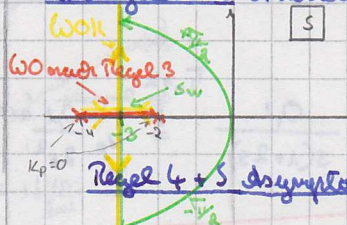 WOK
π/2
S
WO nach Regel 3
Sw
-4 -3 -2
Kp=0
Regel 4 + 5 Asympto
-π/2